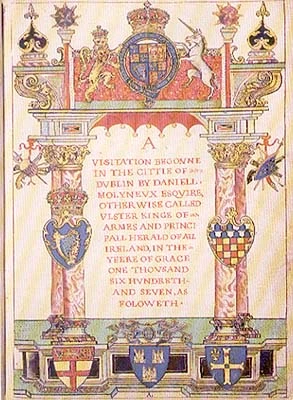 A
VISITATION BEGONNE
IN THE CITTIE OF
DVBLIN BY DANIELL
MOLYNEVX ESQVIRE,
OTHERWISE CALLED
VLSTER KINGE OF
ARMES AND PRINCI
PALL HERALD OF ALL
IRELAND, IN THE
YEERE OF GRACE
ONE THOVSAND
SIX HVNDRETH
AND SEVEN, AS
FOLOWETH ·